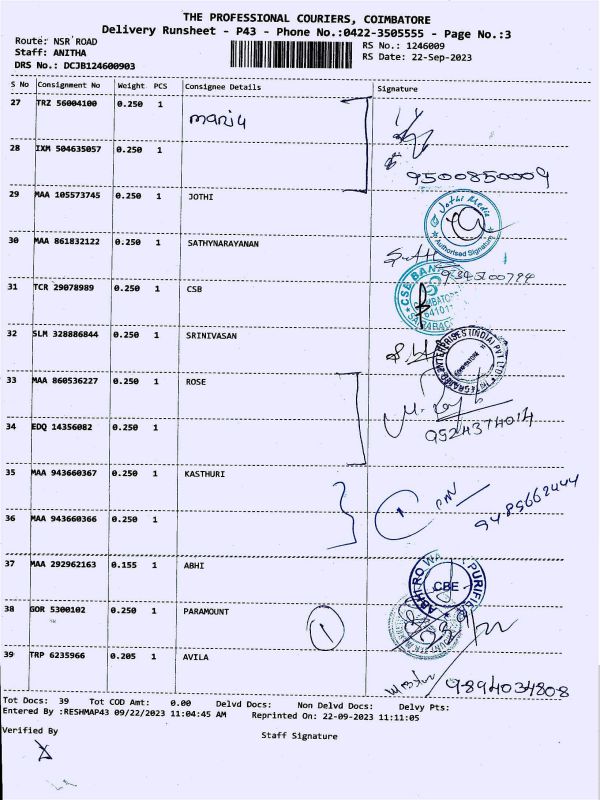 THE PROFESSIONAL COURIERS, COIMBATORE
Delivery Runsheet - P43 - Phone No.:0422-3505555 - Page No.:3
Route: NSR ROAD
Staff: ANITHA
DRS No.: DCJB124600903
RS No.: 1246009
RS Date: 22-Sep-2023
S No Consignment No Weight PCS Consignee Details Signature
27 TRZ 56004100 0.250 1 manju
28 IXM 504635057 0.250 1
9500850009
29 MAA 105573745 0.250 1 JOTHI
Jothi Media
Authorised Signatory
30 MAA 861832122 0.250 1 SATHYNARAYANAN
31 TCR 29078989 0.250 1 CSB
CSB BANK
32 SLM 328886844 0.250 1 SRINIVASAN
ENTERPRISES (INDIA) PVT LTD
33 MAA 860536227 0.250 1 ROSE
34 EDQ 14356082 0.250 1
9524374014
35 MAA 943660367 0.250 1 KASTHURI
1
9485662444
36 MAA 943660366 0.250 1
37 MAA 292962163 0.155 1 ABHI
CBE
38 GOR 5300102 0.250 1 PARAMOUNT
1
39 TRP 6235966 0.205 1 AVILA
9894034808
Tot Docs: 39 Tot COD Amt: 0.00 Delvd Docs: Non Delvd Docs: Delvy Pts:
Entered By :RESHMAP43 09/22/2023 11:04:45 AM Reprinted On: 22-09-2023 11:11:05
Verified By
Staff Signature